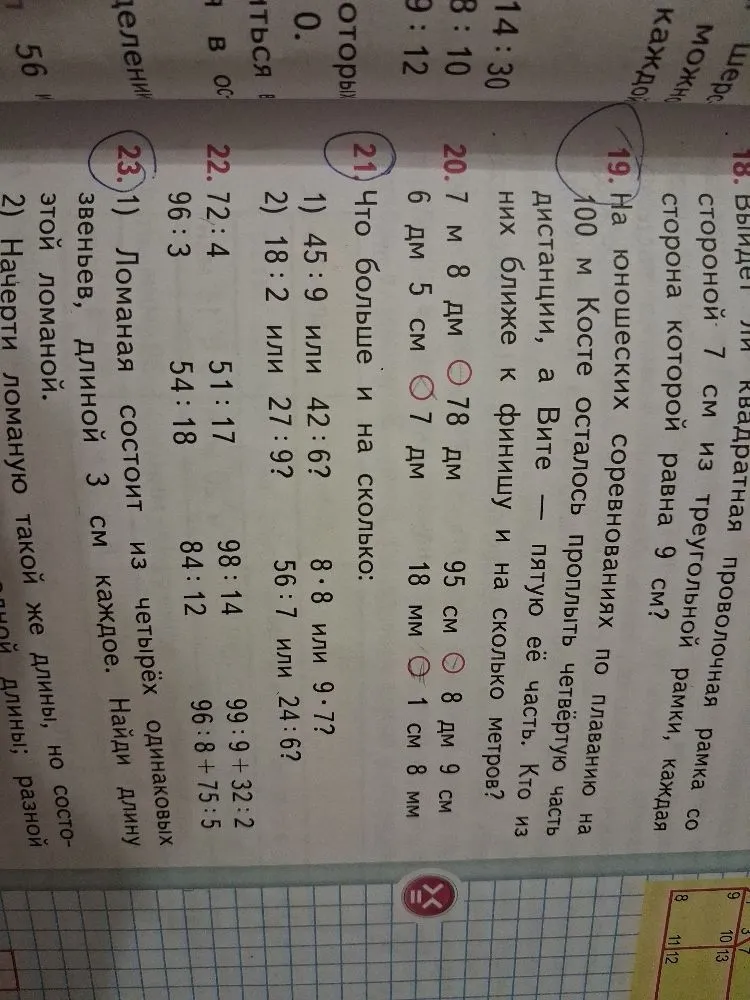 шерс
можно
каждой
14 : 30
8 : 10
9 : 12
оторых
0.
иться в
я в ос-
делении
56 и
18. Выйдет ли квадратная проволочная рамка со
стороной 7 см из треугольной рамки, каждая
сторона которой равна 9 см?
19. На юношеских соревнованиях по плаванию на
100 м Косте осталось проплыть четвёртую часть
дистанции, а Вите — пятую её часть. Кто из
них ближе к финишу и на сколько метров?
20. 7 м 8 дм 78 дм 95 см 8 дм 9 см
6 дм 5 см 7 дм 18 мм 1 см 8 мм
21. Что больше и на сколько:
1) 45 : 9 или 42 : 6? 8 · 8 или 9 · 7?
2) 18 : 2 или 27 : 9? 56 : 7 или 24 : 6?
22. 72 : 4 51 : 17 98 : 14 99 : 9 + 32 : 2
96 : 3 54 : 18 84 : 12 96 : 8 + 75 : 5
23. 1) Ломаная состоит из четырёх одинаковых
звеньев, длиной 3 см каждое. Найди длину
этой ломаной.
2) Начерти ломаную такой же длины, но состо-
длины; разной
9 3 7
10 13
8 11 12